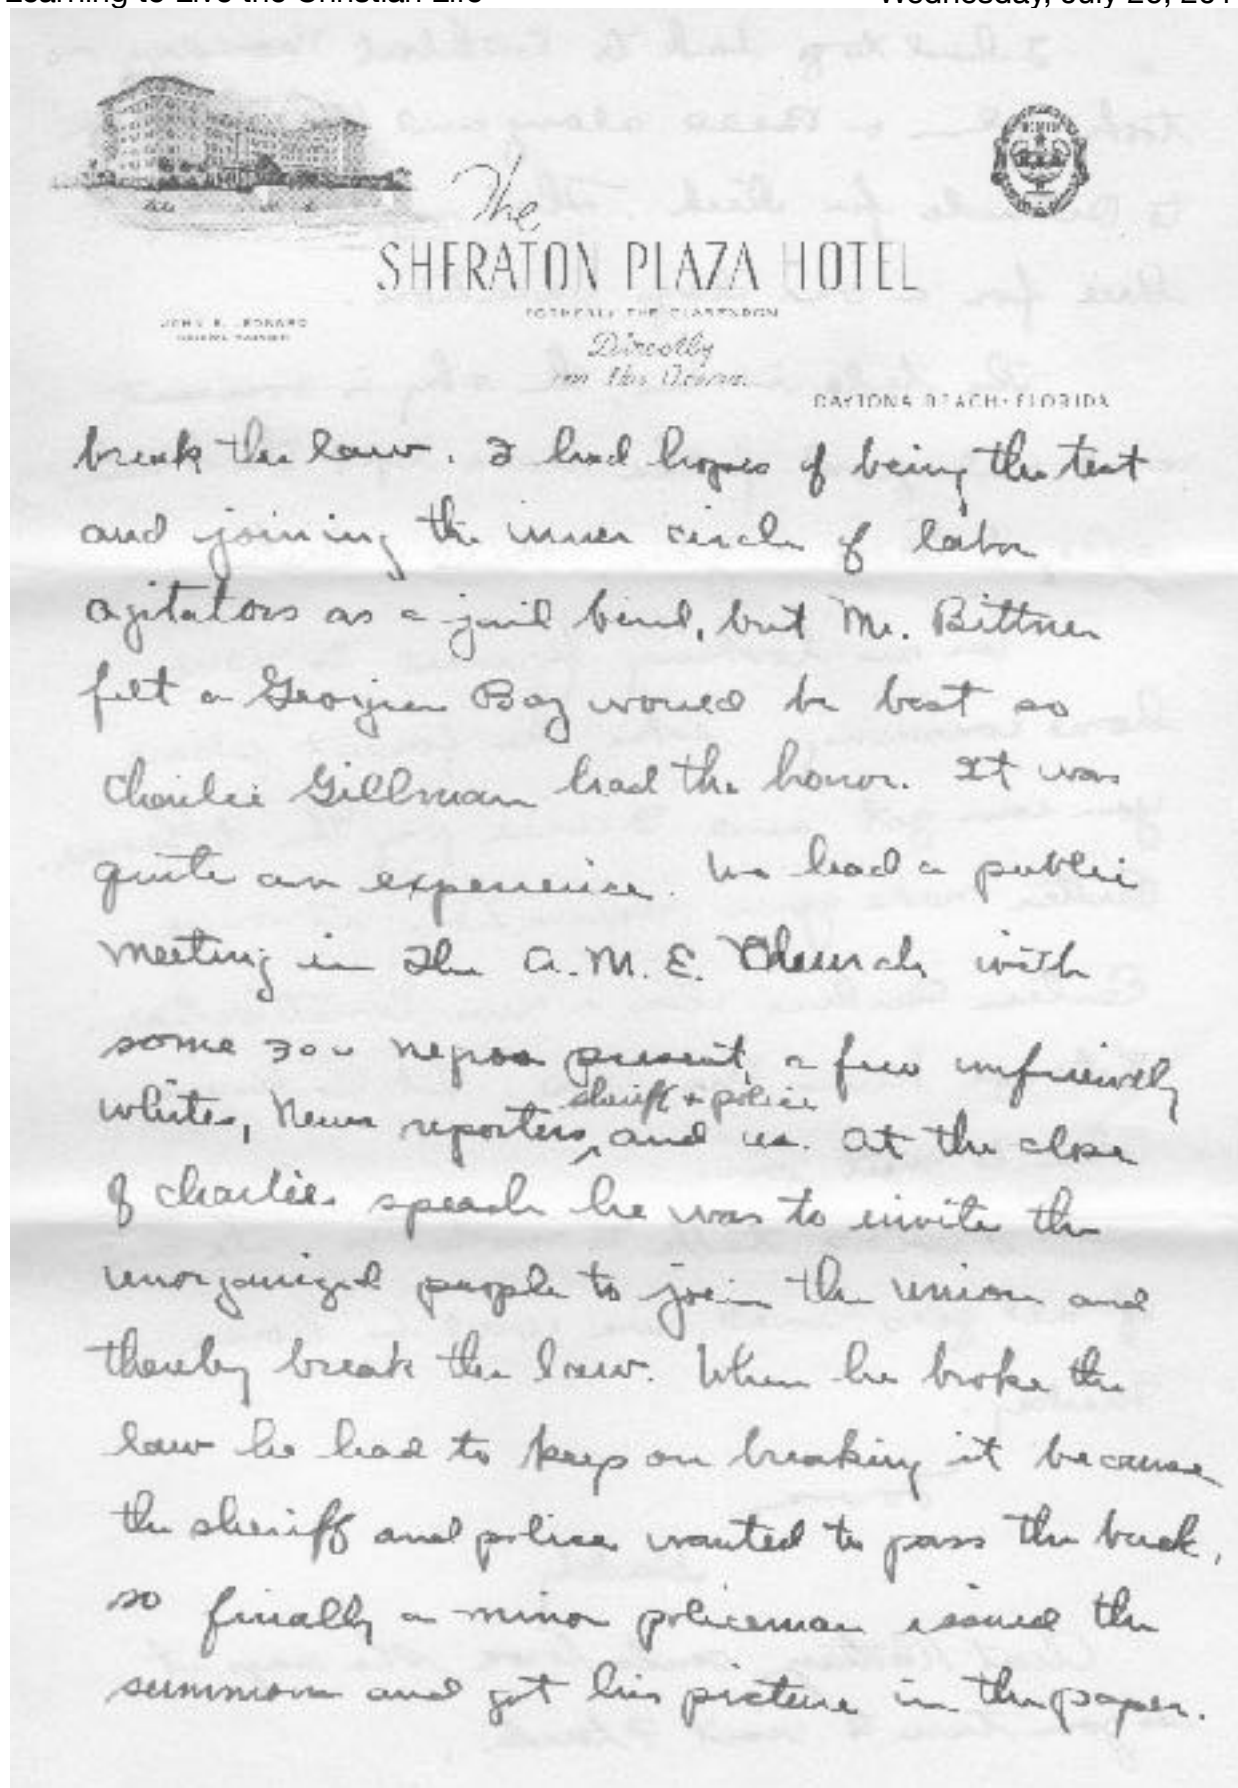 Learning to Live the Christian Life
Wednesday, July 20, 201
The
SHERATON PLAZA HOTEL
FORMERLY THE CLARENDON
Directly
on the Ocean
DAYTONA BEACH · FLORIDA
break the law. I had hopes of being the test
and joining the inner circle of labor
agitators as a jail bird, but Mr. Bittner
felt a Georgia Boy would be best so
Charlie Gillman had the honor. It was
quite an experience. We had a public
meeting in the A.M.E. Church with
some 300 negroes present, a few unfriendly
sheriff + police
whites, News reporters, and us. At the close
of Charlies speach he was to invite the
unorganized people to join the union and
thereby break the law. When he broke the
law he had to keep on breaking it because
the sheriff and police wanted to pass the buck,
so finally a minor policeman issued the
summon and got his picture in the paper.